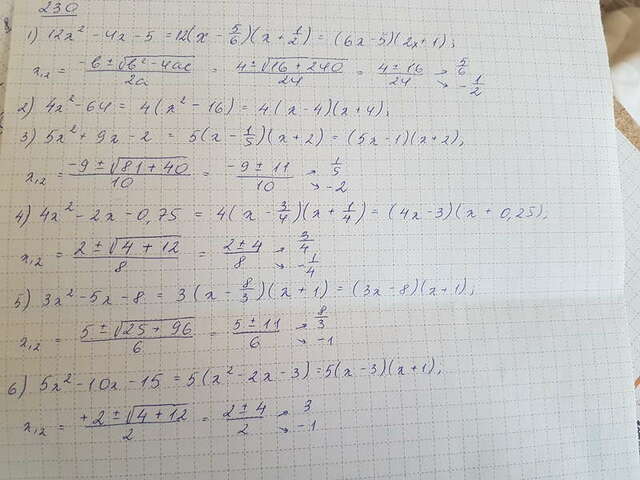 230
1) 12x² - 4x - 5 = 12(x - 5/6)(x + 1/2) = (6x - 5)(2x + 1);
x₁,₂ = (-b ± √(b² - 4ac))/2a = (4 ± √(16 + 240))/24 = (4 ± 16)/24 → 5/6 → -1/2
2) 4x² - 64 = 4(x² - 16) = 4(x - 4)(x + 4);
3) 5x² + 9x - 2 = 5(x - 1/5)(x + 2) = (5x - 1)(x + 2);
x₁,₂ = (-9 ± √(81 + 40))/10 = (-9 ± 11)/10 → 1/5 → -2
4) 4x² - 2x - 0,75 = 4(x - 3/4)(x + 1/4) = (4x - 3)(x + 0,25);
x₁,₂ = (2 ± √(4 + 12))/8 = (2 ± 4)/8 → 3/4 → -1/4
5) 3x² - 5x - 8 = 3(x - 8/3)(x + 1) = (3x - 8)(x + 1);
x₁,₂ = (5 ± √(25 + 96))/6 = (5 ± 11)/6 → 8/3 → -1
6) 5x² - 10x - 15 = 5(x² - 2x - 3) = 5(x - 3)(x + 1);
x₁,₂ = (+2 ± √(4 + 12))/2 = (2 ± 4)/2 → 3 → -1